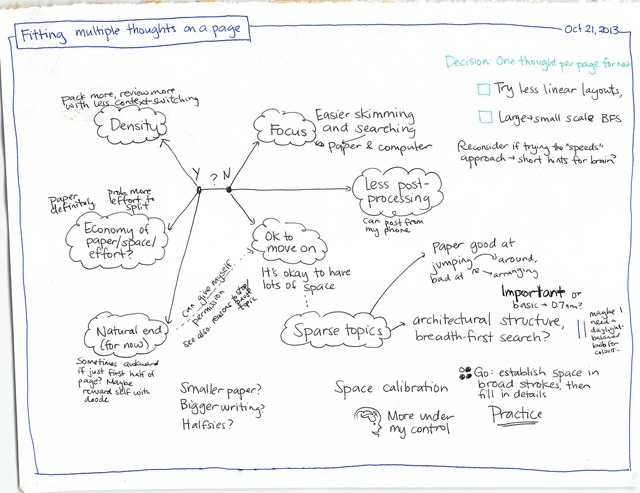 Fitting multiple thoughts on a page
Oct 21, 2013
Decision: One thought per page for now
Try less linear layouts,
Large→small scale BFS
Reconsider if trying the "speeds"
approach → short hints for brain?
pack more, review more
with less context-switching
Density
Focus
Easier skimming
and searching
paper & computer
Y ? N
Less post-
processing
can post from
my phone
Paper
definitely
prob. more
effort to
split
Economy of
paper/space/
effort?
OK to
move on
It's okay to have
lots of space
can give myself
permission
see also: reasons to stop/
topic
Natural end
(for now)
Sometimes awkward
if just first half of
page? Maybe
reward self with
doodle
Sparse topics
Paper good at
jumping around,
bad at re-arranging
Important or
basic → 0.7mm?
architectural structure,
breadth-first search?
maybe I
need a
daylight-
balanced
bulb for
colour..
Go: establish space in
broad strokes, then
fill in details
Practice
Smaller paper?
Bigger writing?
Halfsies?
Space calibration
More under
my control